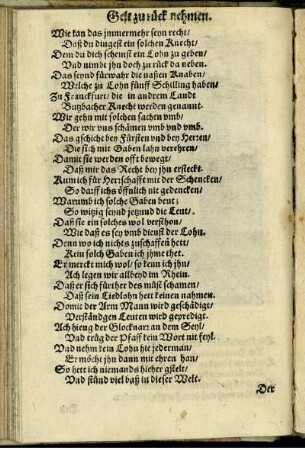 Gelt zu rück nehmen.
Wie kan das jmmermehr seyn recht/
Daß du dingest ein solchen Knecht/
Dem du dich schemst ein Lohn zu geben/
Vnd nimbt jhn doch zu rück da neben.
Das seynd fürwahr die nassen Knaben/
Welche zu Lohn fünff Schilling haben/
Zu Franckfurt/ die in andrem Landt
Butzbacher Knecht werden genannt.
Wir gehn mit solchen sachen vmb/
Der wir vns schämen vmb vnd vmb.
Das gschicht bey Fürsten vnd bey Herren/
Die sich mit Gaben lahn verehren/
Damit sie werden offt bewegt/
Daß mir das Recht bey jhn ersteckt.
Kum ich für Herrschafft mit der Schencken/
So darff ichs öffnlich nit gedencken/
Warumb ich solche Gaben beut;
So witzig seynd jetzund die Leut/.
Daß sie ein solches wol verstohn/
Wie daß es sey vmb dienst der Lohn.
Denn wo ich nichts zuschaffen hett/
Kein solch Gaben ich jhme thet.
Er merckt mich wol/ so kenn ich jhn/
Ach legen wir allbeyd im Rhein.
Daß er sich fürther des müst schamen/
Daß sein Liedlohn hett keinen nahmen.
Domit der Arm Mann wird geschädigt/
Verständgen Leuten wird gepredigt.
Ach hieng der Glocknart an dem Seyl/
Vnd trüg der Pfaff kein Wort nit feyl.
Vnd nehm kein Lohn hie jederman/
Er möcht jhn dann mit ehren han/
So hett ich niemands hieher gstelt/
Vnd stünd viel baß in dieser Welt.
Der